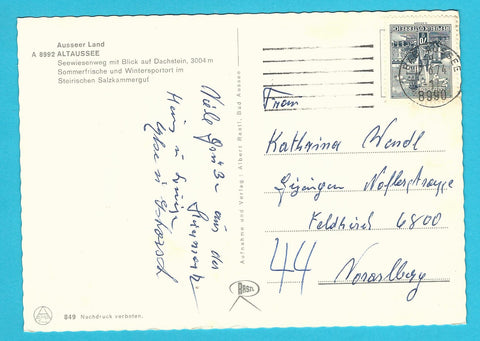 Ausseer Land
A 8992 ALTAUSSEE
Seewiesenweg mit Blick auf Dachstein, 3004 m
Sommerfrische und Wintersportort im
Steirischen Salzkammergut
Viele Grüße aus der
Steiermark
Aufnahme und Verlag: Albert Rastl, Bad Aussee
RASTL
849 Nachdruck verboten.
8990
Frau
Katharina Wendl
Noflerstrasse
Feldkirch 6800
44 Vorarlberg